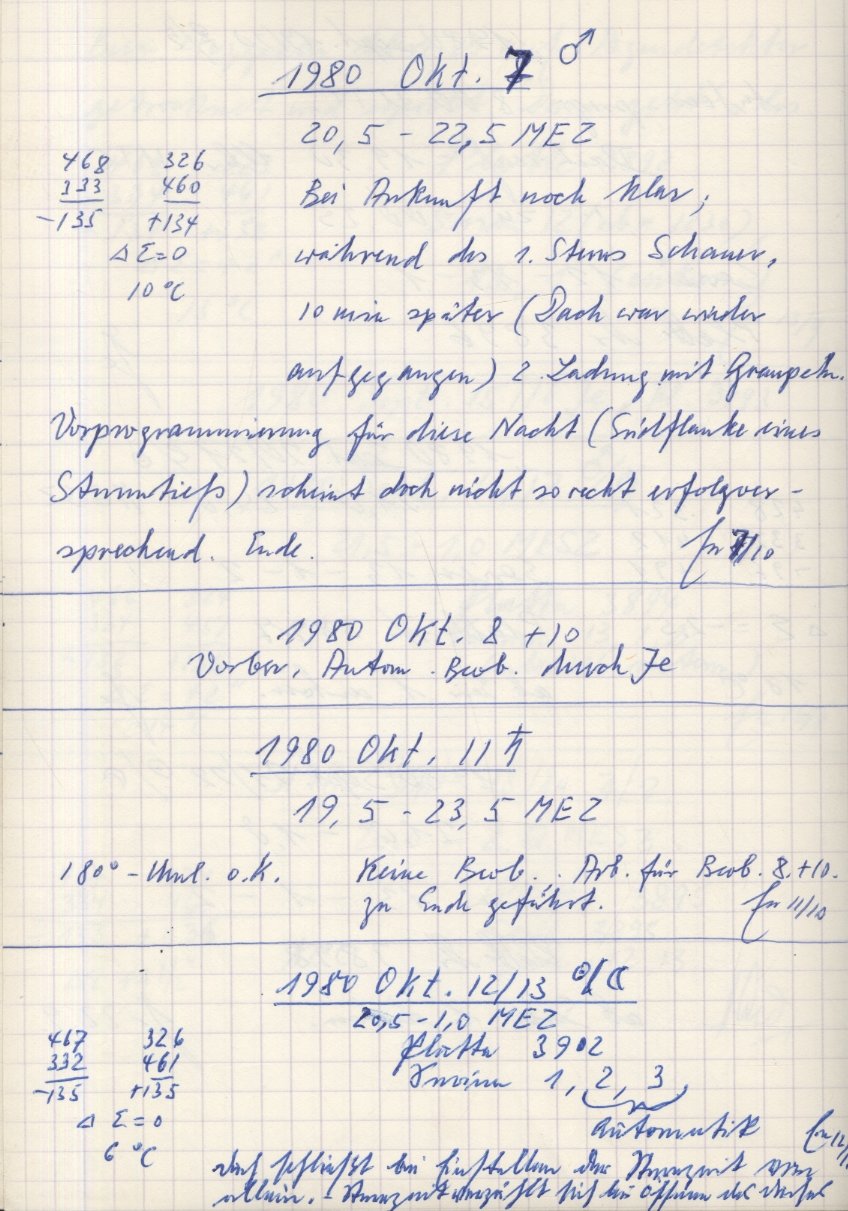 1980 Okt. 7 ♂
20,5 - 22,5 MEZ
468 326
333 460
-135 +134
Δ Σ = 0
10 °C
Bei Ankunft noch klar,
während des 1. Sterns Schauer,
10 min später (Dach war wieder
aufgegangen) 2. Ladung mit Graupeln.
Vorprogrammierung für diese Nacht (Südflanke eines
Sturmtiefs) scheint doch nicht so recht erfolgver-
sprechend. Ende. 7/10
1980 Okt. 8 + 10
Vorber. Autom. Beob. durch Je
1980 Okt. 11 ♄
19,5 - 23,5 MEZ
180° - Uml. o.K. Keine Beob. Arb. für Beob. 8. + 10.
zu Ende geführt. 11/10
1980 Okt. 12/13 ☉/☾
20,5 - 1,0 MEZ
467 326
332 461
-135 +135
Δ Σ = 0
6 °C
Platte 3902
1, 2, 3
Automatik
schließt bei Einstellen der Sternzeit von
allein. - Sternzeit verzählt sich bei Öffnen des